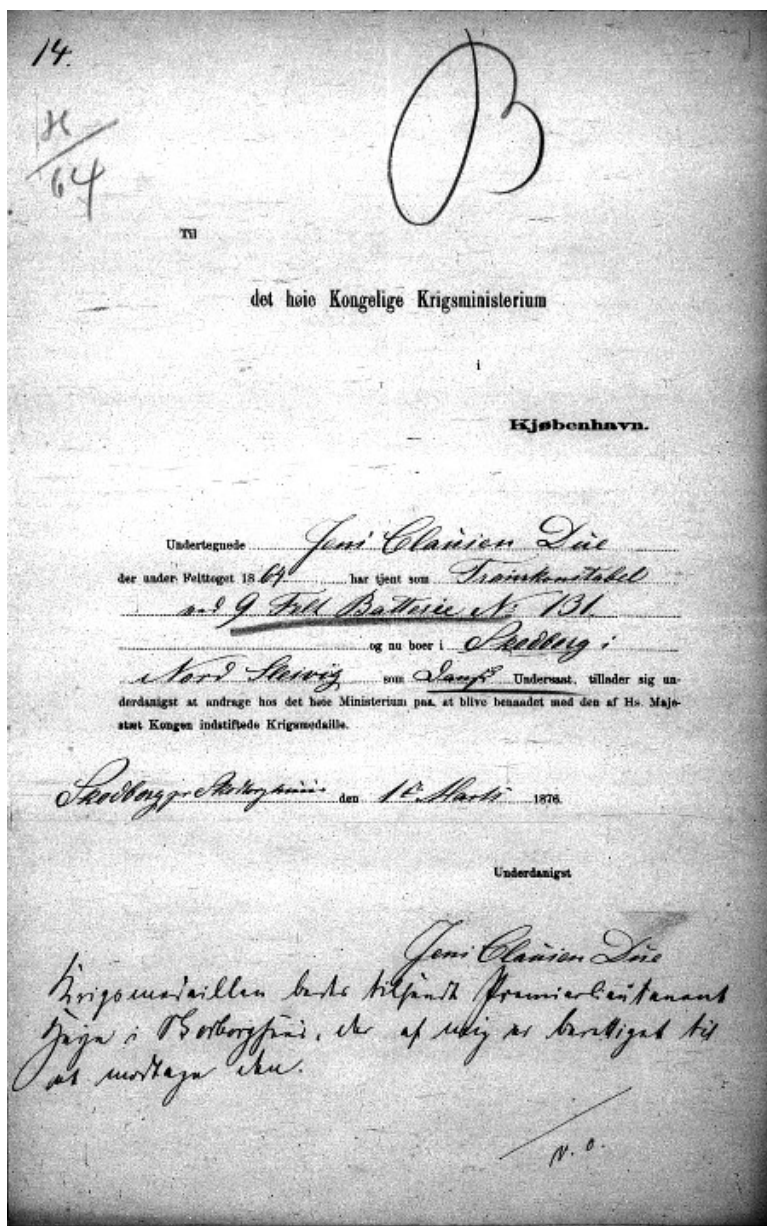 14.
B
H
64
Til
det høie Kongelige Krigsministerium
i
Kjøbenhavn.
Undertegnede Jens Clausen Due
der under Felttoget 1864 har tjent som Trainkonstabel
ved 9 Felt Batterie No 131.
og nu boer i Skodborg i
Nord Slesvig som Dansk Undersaat, tillader sig un-
derdanigst at andrage hos det høie Ministerium paa, at blive benaadet med den af Hs. Maje-
stæt Kongen indstiftede Krigsmedaille.
Skodborg pr Skodborghuus den 1e Marts 1876.
Underdanigst
Jens Clausen Due
Krigsmedaillen bedes tilsendt Premierlieutenant
i, der af mig er berettiget til
at modtage den.
v. o.